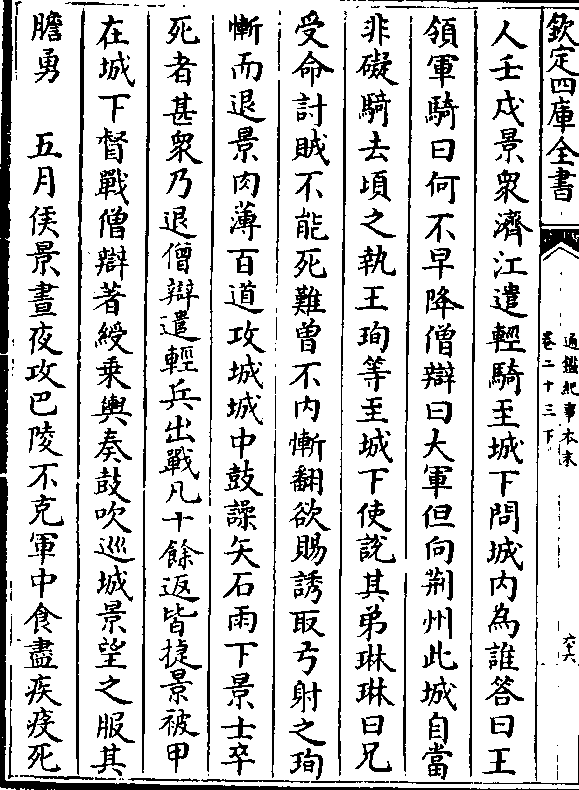 欽定四庫全書
通鑑紀事本末
卷二十三下
六十六
人壬戌景衆濟江遣輕騎至城下問城内為誰答曰王
領軍騎曰何不早降僧辯曰大軍但向荆州此城自當
非礙騎去頃之執王珣等至城下使說其弟琳琳曰兄
受命討賊不能死難曾不内慚翻欲賜誘取弓射之珣
慚而退景肉薄百道攻城城中鼓譟矢石雨下景士卒
死者甚衆乃退僧辯遣輕兵出戰凡十餘返皆捷景被甲
在城下督戰僧辯著綬乘輿奏鼓吹巡城景望之服其
膽勇　五月侯景晝夜攻巴陵不克軍中食盡疾疫死